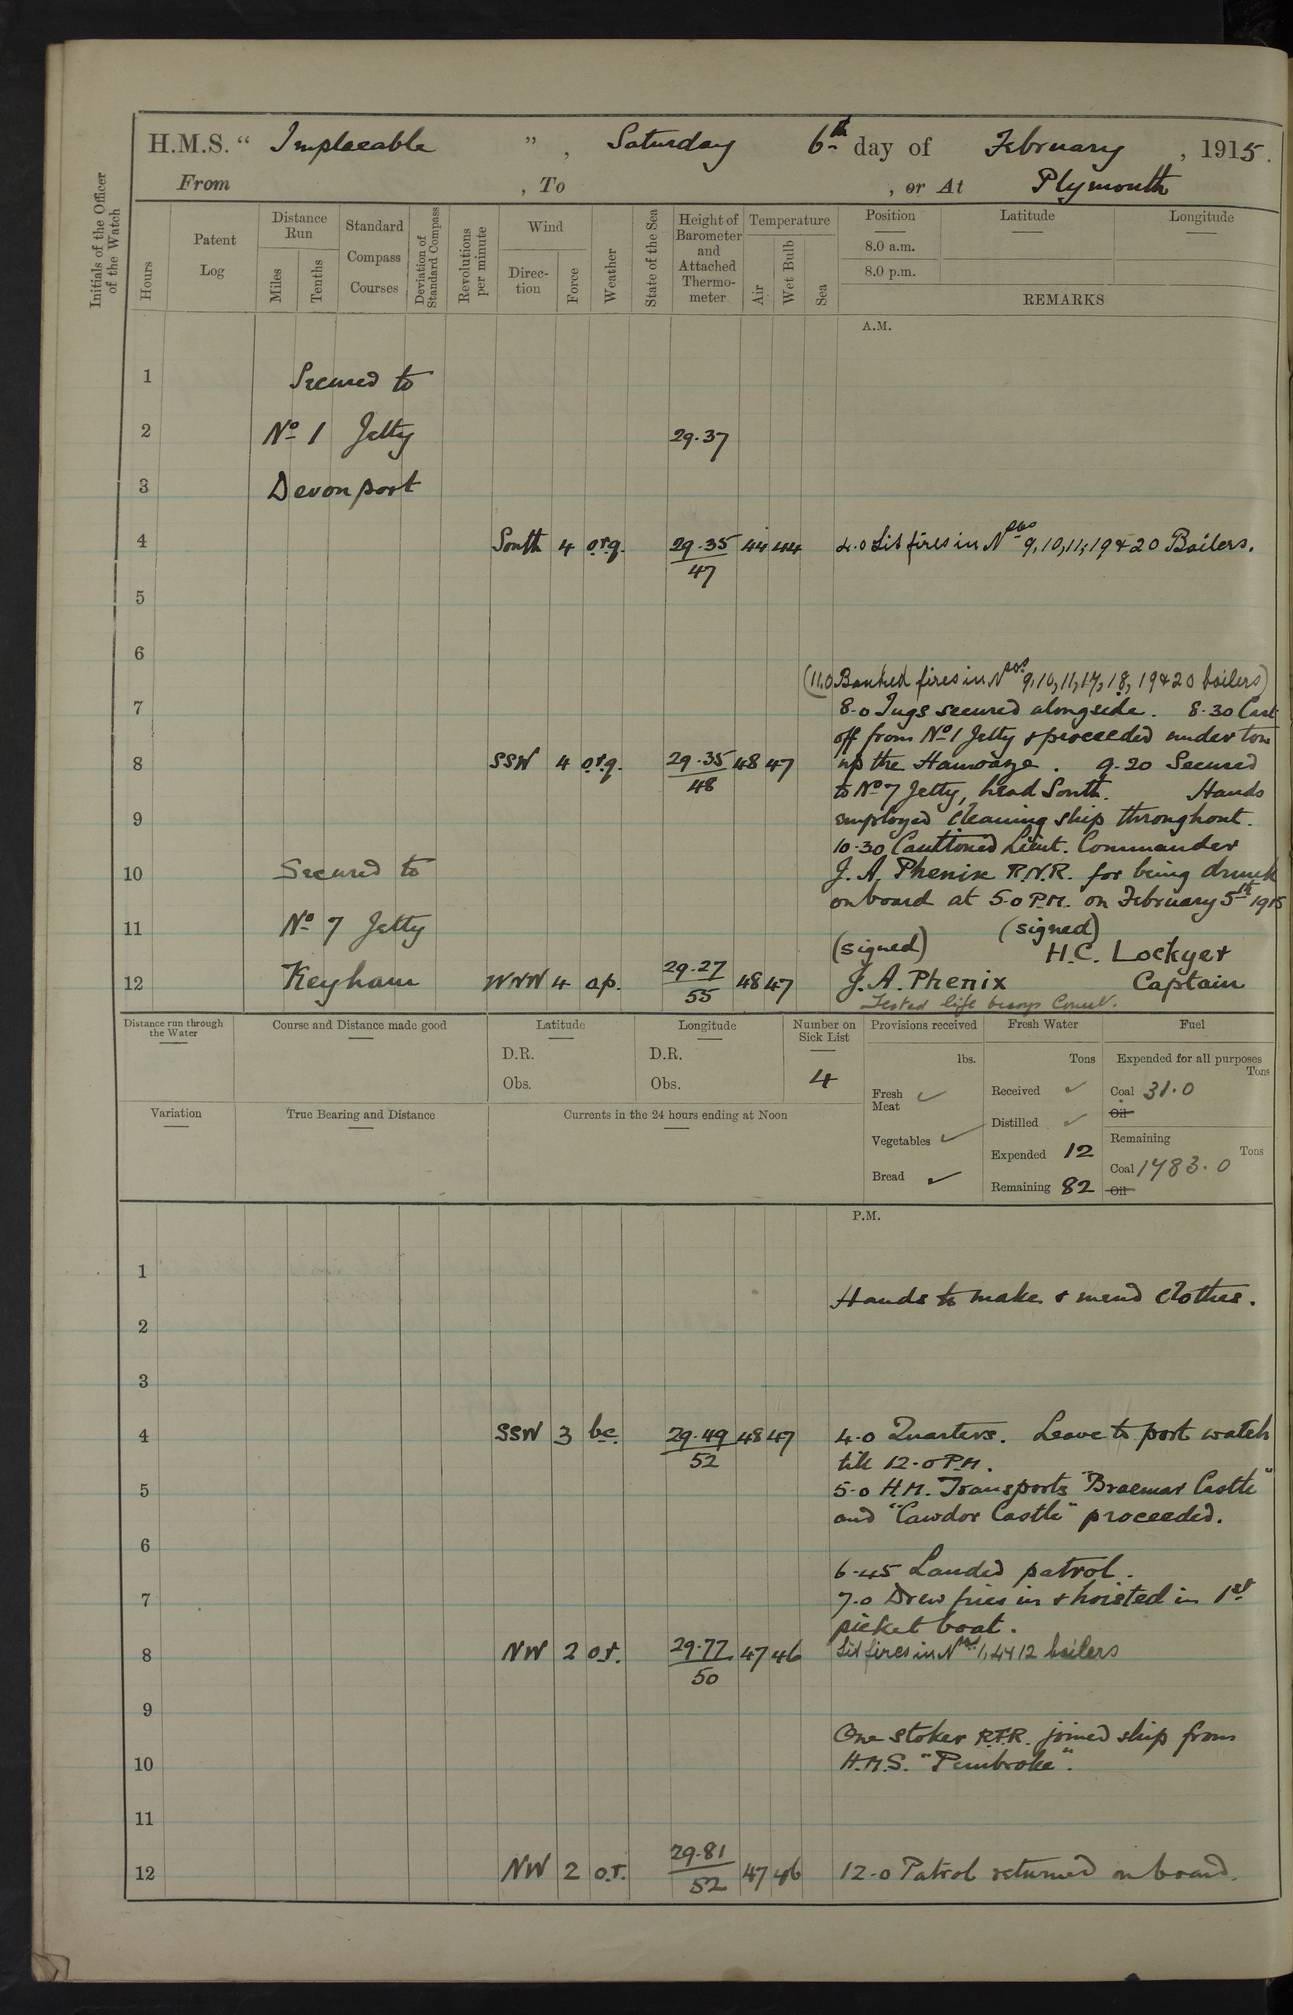 H.M.S. " Implacable ", Saturday 6th day of February, 1915.
From , To , or At Plymouth
Initials of the Officer of the Watch
Hours
Patent Log
Distance Run
Miles
Tenths
Standard Compass Courses
Deviation of Standard Compass
Revolutions per minute
Wind
Direc-tion
Force
Weather
State of the Sea
Height of Barometer and Attached Thermo-meter
Temperature
Air
Wet Bulb
Sea
Position
8.0 a.m.
8.0 p.m.
Latitude
Longitude
REMARKS
A.M.
1 Secured to
2 No 1 Jetty 29.37
3 Devonport
4 South 4 o.r.q. 29.35/47 44 44 4.0 Lit fires in Nos 9, 10, 11, 19 & 20 Boilers.
5
6
(11.0 Banked fires in Nos 9, 10, 11, 17, 18, 19 & 20 boilers)
7 8.0 Tugs secured alongside. 8.30 Cast
off from No 1 Jetty & proceeded under tow
8 SSW 4 o.r.q. 29.35/48 48 47 up the Hamoaze. 9.20 Secured
to No 7 Jetty, head South. Hands
9 employed cleaning ship throughout.
10.30 Cautioned Lieut. Commander
10 Secured to J. A. Phenix R.N.R. for being drunk
on board at 5.0 P.M. on February 5th 1915
11 No 7 Jetty (signed) (signed)
H.C. Lockyer
12 Keyham WNW 4 o.p. 29.27/55 48 47 J. A. Phenix Captain
Tested life buoys
Distance run through the Water
Course and Distance made good
Latitude
D.R.
Obs.
Longitude
D.R.
Obs.
Number on Sick List
4
Provisions received
lbs.
Fresh Meat ✓
Vegetables ✓
Bread ✓
Fresh Water
Tons
Received ✓
Distilled ✓
Expended 12
Remaining 82
Fuel
Expended for all purposes
Tons
Coal 31.0
Oil
Remaining
Tons
Coal 1783.0
Oil
Variation
True Bearing and Distance
Currents in the 24 hours ending at Noon
P.M.
1
Hands to make & mend clothes.
2
3
4 SSW 3 bc. 29.49/52 48 47 4.0 Quarters. Leave to port watch
till 12.0 P.M.
5 5.0 H.M. Transports "Braemar Castle"
and "Cawdor Castle" proceeded.
6
6.45 Landed patrol.
7 7.0 Drew fires in & hoisted in 1st
picket boat.
8 NW 2 o.r. 29.77/50 47 46 Lit fires in Nos 1, 4 & 12 boilers
9
One stoker R.F.R. joined ship from
10 H.M.S. "Pembroke".
11
12 NW 2 o.r. 29.81/52 47 46 12.0 Patrol returned on board.